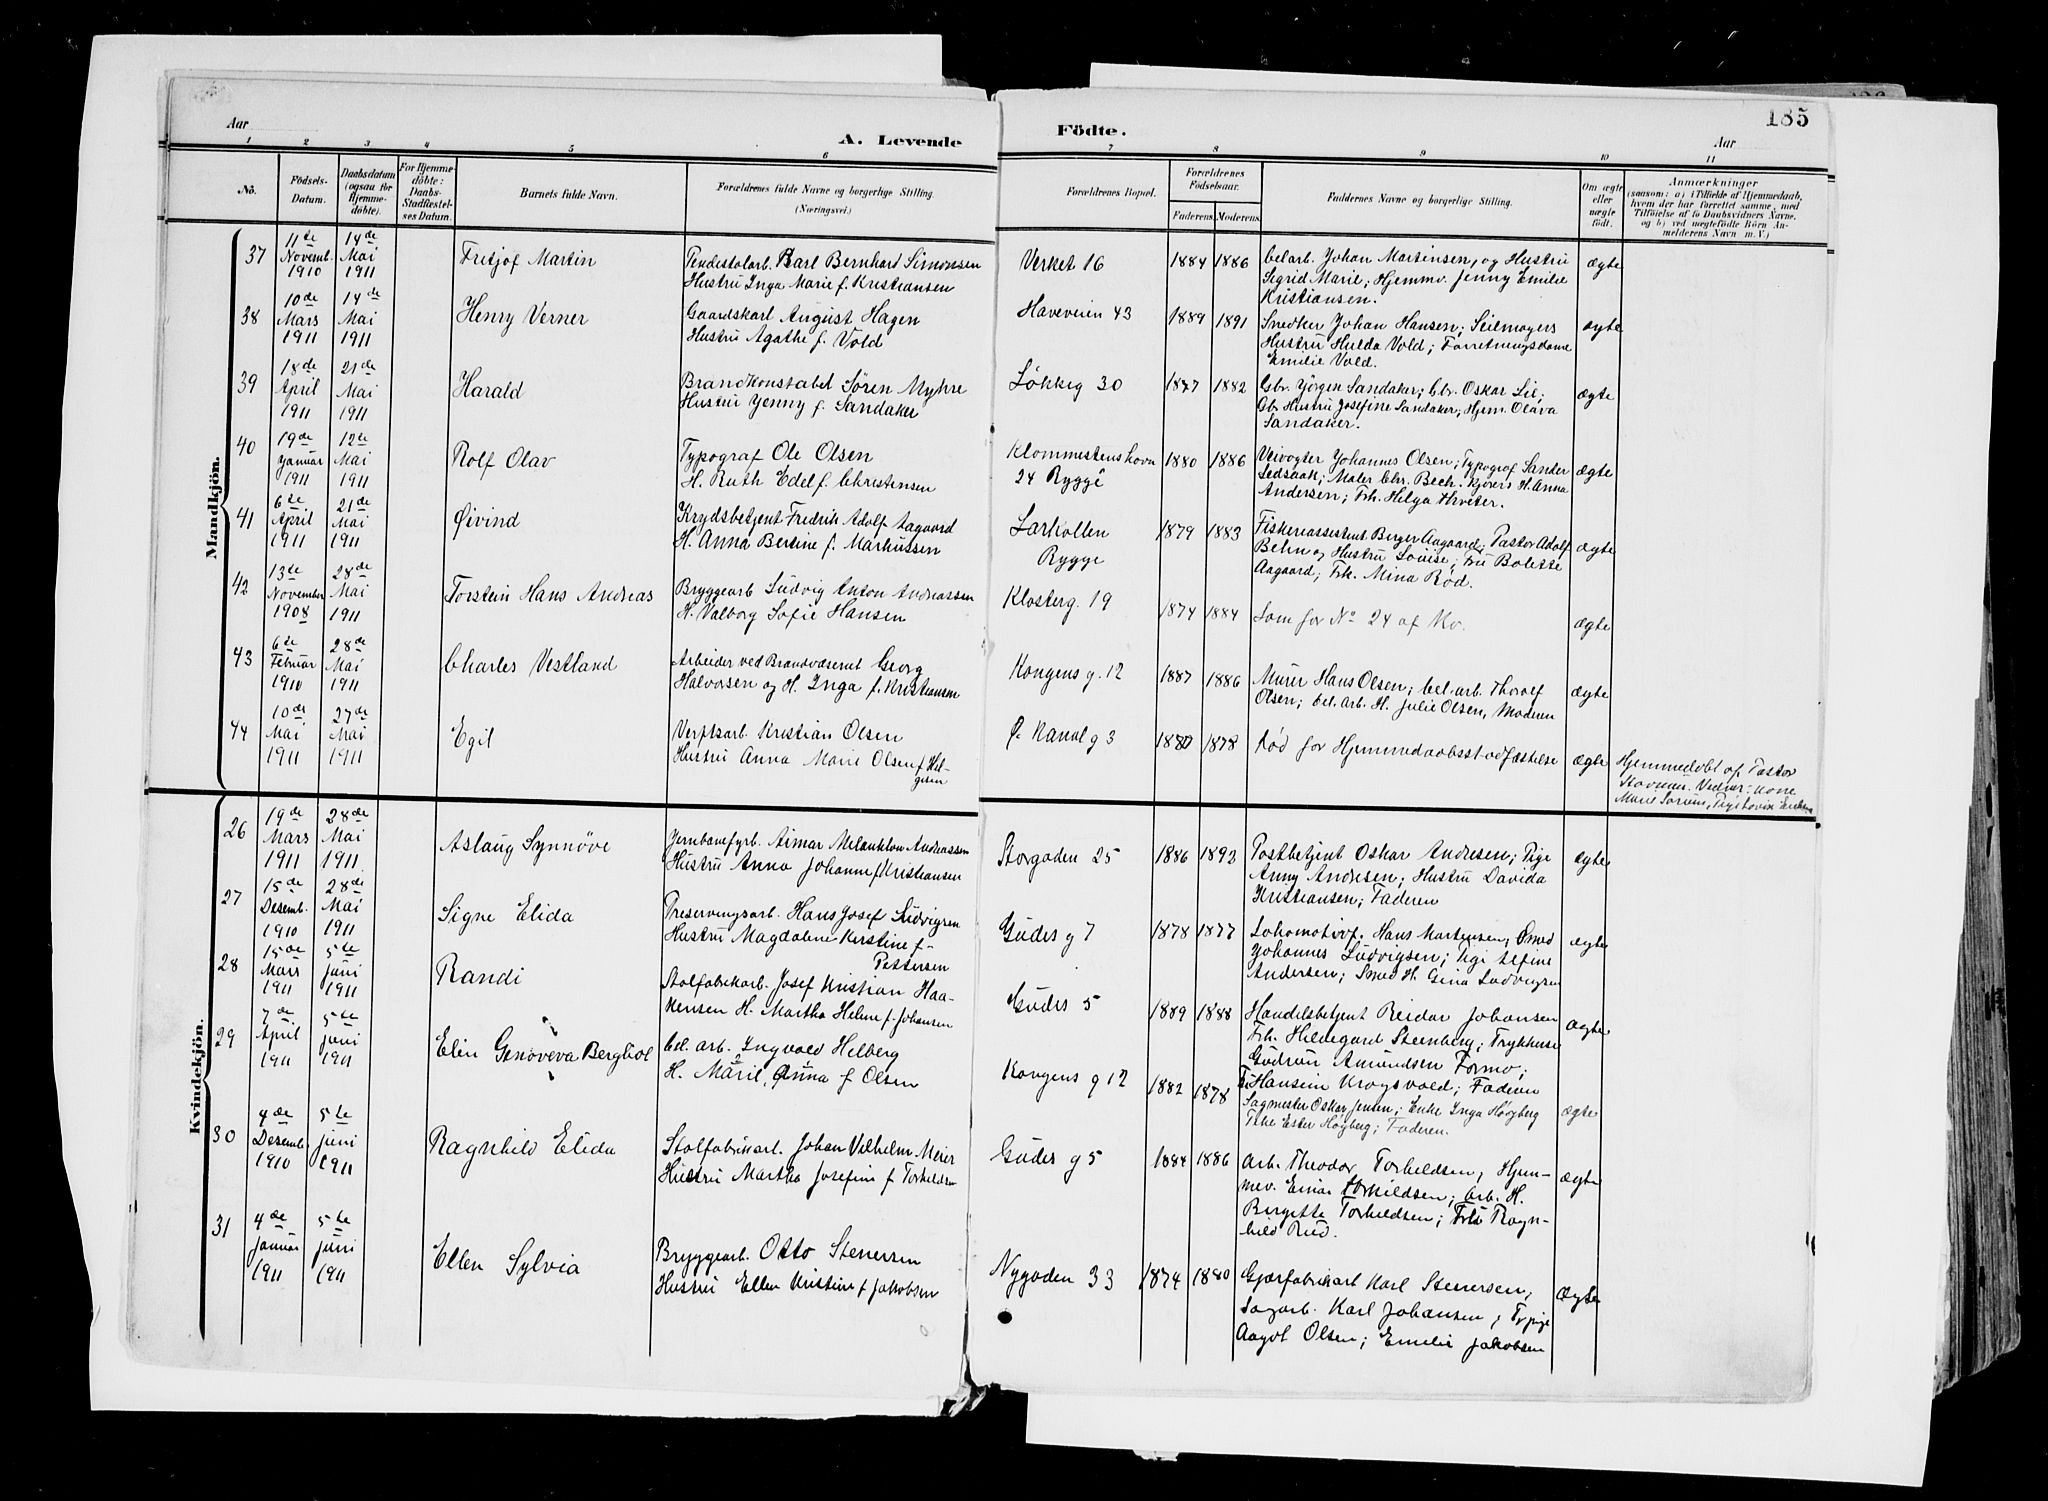 Aar
A. Levende
Födte.
Aar
185
1 2 3 4 5 6 7 8 9 10 11
No.
Födsels-
Datum.
Daabsdatum
(ogsaa for
Hjemme-
döbte).
For Hjemme-
döbte:
Daabs-
Stadfestel-
ses Datum.
Barnets fulde Navn.
Forældrenes fulde Navne og borgerlige Stilling.
(Næringsvei.)
Forældrenes Bopæl.
Forældrenes
Födselsaar.
Faderens.
Moderens.
Faddernes Navne og borgerlige Stilling.
Om ægte
eller
uægte
födt.
Anmærkninger
(saasom: a) i Tilfælde af Hjemmedaab,
hvem der har forrettet samme, med
Tilföielse af to Daabsvidners Navne,
og b) ved uegtefödte Börn An-
melderens Navn m. V.)
Mandkjön.
37
11te
Novemb.
1910
14de
Mai
1911
Fritjof Martin
Karl Bernhard Simonsen
Hustru Inga Marie f. Kristiansen
Verket 16
1884
1886
Johan Martinsen, og Hustru
Sigrid Marie; Hjemmv. Jenny Emilie
Kristiansen.
ægte
38
10de
Mars
1911
14de
Mai
1911
Henry Verner
Gaardskarl August Hagen
Hustru Agathe f. Vold
Haveveien 43
1889
1891
Snedker Johan Hansen; Seilmagers
Hustru Hulda Vold; Forretningsdame
Emilie Vold.
ægte
39
18de
April
1911
21de
Mai
1911
Harald
Brandkonstabel Sören Myhre
Hustru Jenny f. Sandaker
Lökkeg 30
1882
Gbr. Jörgen Sandaker; Gbr. Oskar Lie;
Gbr Hustru Josefine Sandaker; Hjem. Olava
Sandaker.
ægte
40
19de
Januar
1911
12te
Mai
1911
Rolf Olav
Typograf Ole Olsen
H. Ruth Edel f. Christensen
24 Rygge
1880
1886
Veivogter Johannes Olsen; Typograf Sander
Maler Chr. Bech. Kjörers H. Anna
Andersen; Frk. Helga
ægte
41
6te
April
1911
21de
Mai
1911
Øivind
Krydsbetjent Fredrik Adolf Aagaard
H. Anna Bertine f. Markussen
Larkollen
Rygge
1879
1883
Fiskereassistent Birger Aagaard; Pastor Adolf
Behn og Hustru Louise; Fru Bolette
Aagaard; Frk. Mina Röd.
ægte
42
13te
November
1908
28de
Mai
1911
Torstein Hans Andreas
Bryggearb Ludvig Anton Andreassen
H. Valborg Sofie Hansen
Klosterg. 19
1874
1884
Som for No 24 af Kv.
ægte
43
6te
Februar
1910
28de
Mai
1911
Charles Vestland
Arbeider ved Brandvæsenet Georg
Halvorsen og H. Inga f. Kristiansen
Kongens g. 12
1887
1886
Murer Hans Olsen; bel. arb. Thorolf
Olsen; bel. arb. H. Julie Olsen, Moderen
ægte
44
10de
Mai
1911
27de
Mai
1911
Egil
Verftsarb. Kristian Olsen
Hustru Anna Marie Olsen f. Hel-
gesen
Ø. Kanal g 3
1878
Död før Hjemmedaabsstadfæstelse
ægte
Hjemmedöbt af Pastor
Kvindekjön.
26
19de
Mars
1911
28de
Mai
1911
Aslaug Synnöve
Jernbanefyrb. Aimar Melankton Andreassen
Hustru Anna Johanne f. Kristiansen
Storgaden 25
1886
1892
Postbetjent Oskar Andresen; Pige
Anny Andresen; Hustru Davida
Kristiansen; Faderen
ægte
27
15de
Desemb.
1910
28de
Mai
1911
Signe Elida
Preservingsarb. Hans Josef Ludvigsen
Hustru Magdalene Kirstine f.
Pettersen
Gudes g 7
1878
1877
Lokomotivf. Hans Martinsen; Smed
Johannes Ludvigsen; Pige Alfine
Andersen; Smed H. Gina Ludvigsen
ægte
28
15de
Mars
1911
5te
Juni
1911
Randi
Stolfabrikarb. Josef Kristian Haa-
kensen H. Martha Helene f. Johansen
Gudes 5
1889
1888
Handelsbetjent Reidar Johansen
Frk. Hildegard Steenberg;
Gudrun Amundsen
ægte
29
7de
April
1911
5te
Juni
1911
Elin Genoveva Berghol
bel. arb. Ingvald Helberg
H. Marie, Anna f Olsen
Kongens g 12
1882
1878
Krogsvold; Faderen
Sagmester Oskar Jensen; Enke Inga Höyberg
Ester Höyberg; Faderen.
ægte
30
4de
Desemb
1910
5te
Juni
1911
Ragnhild Elida
Stolfabrikarb. Johan Vilhelm Meier
Hustru Martha Josefine f Torkildsen
Gudes g 5
1884
1886
Arb. Theodor Torkildsen; Hjem-
mev. Einar Torkildsen; Arb. H.
Birgitte Torkildsen; Frk Ragn-
hild Rud.
ægte
31
4de
Januar
1911
5te
Juni
1911
Ellen Sylvia
Bryggearb. Otto Stenersen
Hustru Ellen Kristine f Jakobsen
Nygaden 33
1874
1880
Gjærfabrikarb Karl Stenersen;
Sagarb. Karl Johansen;
Aagot Olsen; Emelie Jakobsen
ægte